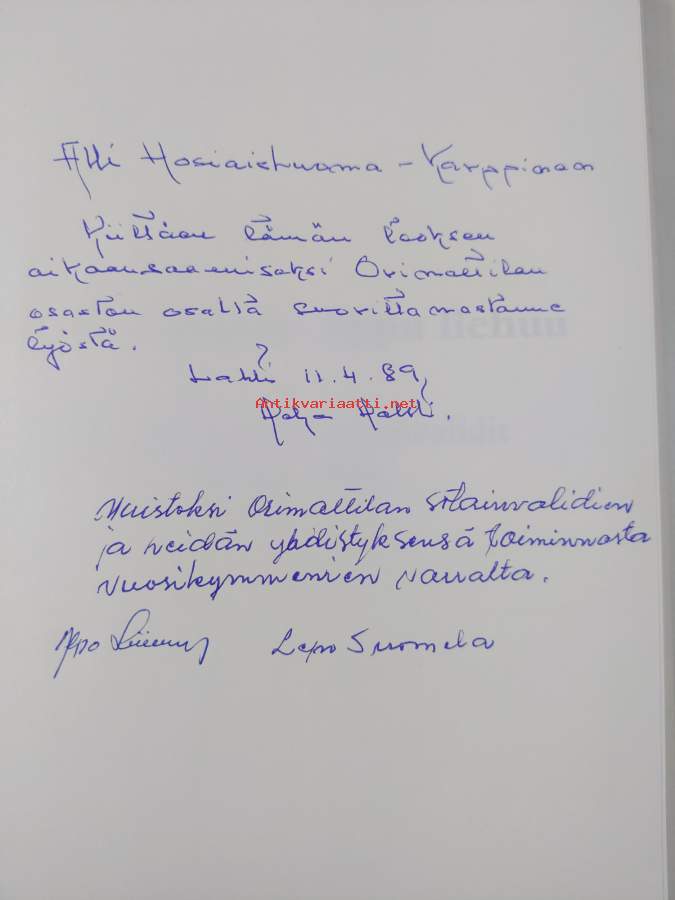 Alli Hosiaisluoma - Karppinen
Kiittäen tämän teoksen
aikaansaamiseksi Orimattilan
osaston osalta suorittamastanne
työstä.
Lahti 11.4.89
Antikvariaatti.net
Muistoksi Orimattilan sotainvalidien
ja heidän yhdistyksensä toiminnasta
vuosikymmenien varralta.
Lepo Suomela